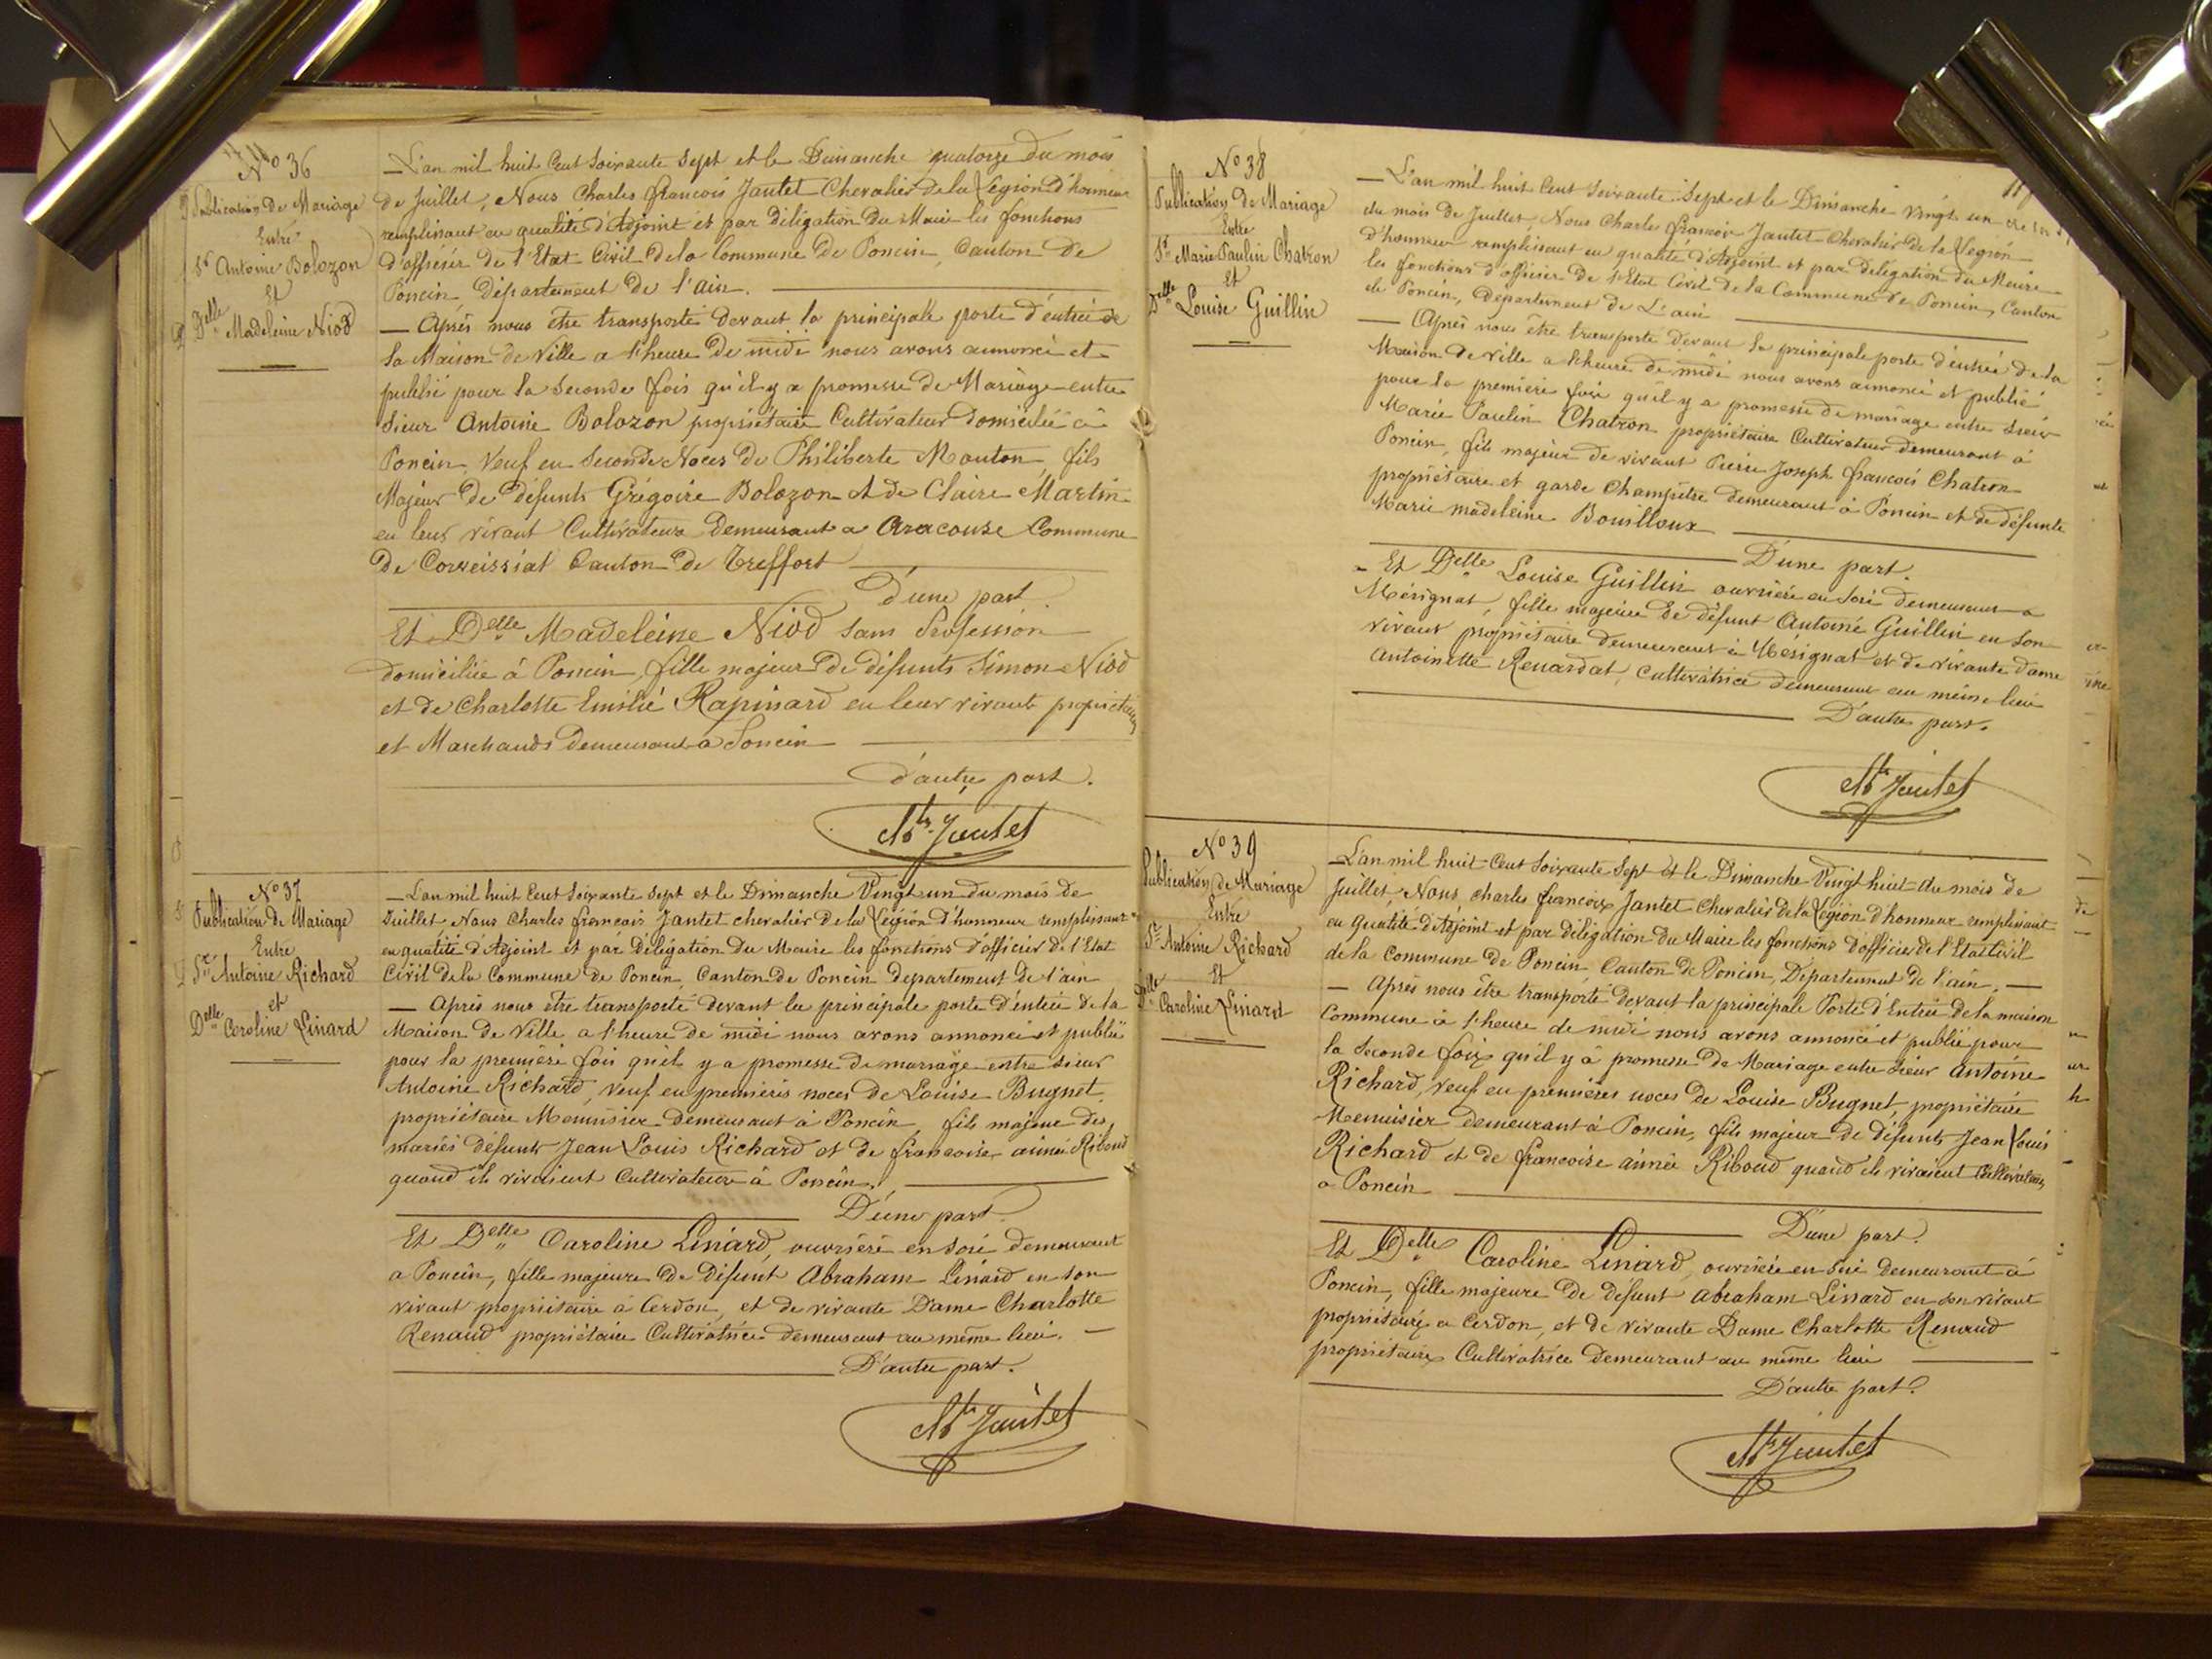 N° 36
Publication de Mariage
Entre
Sr Antoine Bolozon
Et
Delle Madeleine Niod
— L'an mil huit Cent Soixante Sept et le Dimanche quatorze du mois
de Juillet, Nous Charles françois Jantet Chevalier de la Légion d'honneur
remplissant en qualité d'Adjoint et par déligation du Maire les fonctions
d'officier de l'Etat Civil de la Commune de Poncin, Canton de
Poncin, département de l'ain.
— Après nous être transporté devant la principale porte d'entrée de
la Maison de Ville a l'heure de midi nous avons annoncé et
publié pour la Seconde fois qu'il y a promesse de Mariage entre
Sieur Antoine Bolozon propriétaire Cultivateur domicilié à
Poncin, Veuf en Seconde Noces de Philiberte Mouton, fils
Majeur de défunts Grégoire Bolozon et de Claire Martin
en leur vivant Cultivateurs demeurant a Aracouze Commune
de Corveissiat Canton de Treffort
D'une part.
Et Delle Madeleine Niod Sans Profession
domiciliée à Poncin, fille majeur de défunts Simon Niod
et de Charlotte Emilie Rapinard en leur vivant propriétaires
et Marchands demeurant a Poncin
d'autre part.
Chs Jantet
N° 37
Publication de Mariage
Entre
Sr Antoine Richard
et
Delle Caroline Linard
— L'an mil huit Cent Soixante Sept et le Dimanche Vingt un du mois de
Juillet, Nous Charles françois Jantet chevalier de la Légion d'honneur remplissant
en qualité d'Adjoint et par Déligation du Maire les fonctions d'officier de l'Etat
Civil de la Commune de Poncin, Canton de Poncin departement de l'ain
— Après nous être transporté devant la principale porte d'entrée de la
Maison de Ville a l'heure de midi nous avons annoncé et publié
pour la première fois qu'il y a promesse de mariage entre Sieur
Antoine Richard, veuf en premières noces de Louise Bugnet,
propriétaire Menuisier demeurant à Poncin, fils majeur des
mariés défunts Jean Louis Richard et de françoise aimée Riboud
quand ils vivaient Cultivateurs à Poncin.
D'une part
Et Delle Caroline Linard, ouvrière en soie demeurant
a Poncin, fille majeure de défunt Abraham Linard en son
vivant propriétaire à Cerdon, et de vivante Dame Charlotte
Renaud propriétaire Cultivatrice demeurant au même lieu. —
D'autre part.
Chs Jantet
N° 38
Publication de Mariage
Entre
Sr Marie Paulin Chatron
Et
Delle Louise Guillin
— L'an mil huit Cent Soixante Sept et le Dimanche Vingt un
du mois de Juillet Nous Charle françois Jantet Chevalier de la Légion
d'honneur remplissant en qualité d'Adjoint et par délégation du Maire
les fonctions d'officier de l'Etat Civil de la Commune de Poncin, Canton
de Poncin, departement de L'ain
— Après nous être transporté devant la principale porte d'entrée de la
Maison de ville a l'heure de midi nous avons annoncé et publié
pour la première fois qu'il y a promesse de mariage entre Sieur
Marie Paulin Chatron propriétaire Cultivateur demeurant à
Poncin, fils majeur de vivant Pierre Joseph françois Chatron
propriétaire et garde Champêtre demeurant à Poncin et de défunte
Marie madeleine Bouilloux
D'une part.
— Et Delle Louise Guillin ouvrière en soie demeurant a
Mérignat, fille majeure de défunt Antoine Guillin en son
vivant propriétaire demeurant à Mérignat et de vivante dame
Antoinette Renardat, Cultivatrice demeurant au même lieu
D'autre part.
Chs Jantet
N° 39
Publication de Mariage
Entre
Sr Antoine Richard
Et
Delle Caroline Linard
— L'an mil huit Cent Soixante Sept et le Dimanche Vingt huit du mois de
Juillet, Nous, charles françois Jantet Chevalier de la Légion d'honneur remplissant
en Qualité d'Adjoint et par délégation du Maire les fonctions d'officier de l'Etat Civil
de la Commune de Poncin, Canton de Poncin, Département de l'ain. —
— Après nous être transporté devant la principale Porte d'Entrée de la maison
Commune à l'heure de midi nous avons annoncé et publié pour
la Seconde fois qu'il y à promesse de Mariage entre Sieur Antoine
Richard, veuf en premières noces de Louise Bugnet, propriétaire
Menuisier demeurant à Poncin, fils majeur de défunts Jean Louis
Richard et de françoise aimée Riboud quand ils vivaient Cultivateurs
a Poncin
D'une part.
Et Delle Caroline Linard, ouvrière en soie demeurant à
Poncin, fille majeure de défunt abraham Linard en son vivant
propriétaire a Cerdon, et de vivante Dame Charlotte Renaud
propriétaire Cultivatrice demeurant au même lieu
D'autre part.
Chs Jantet